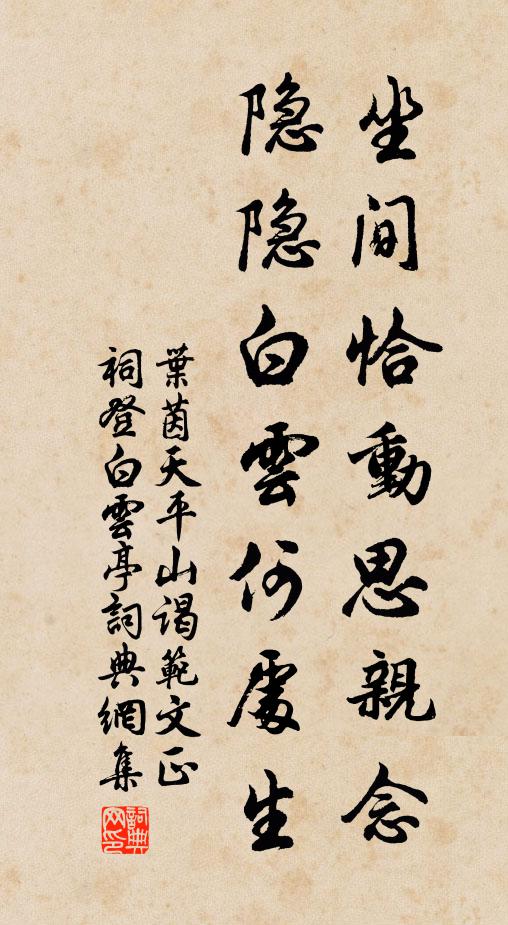 坐间恰動思親念
隐隐白雲何處生
葉茵天平山谒範文正
祠登白雲亭詞典網集
詞典网印